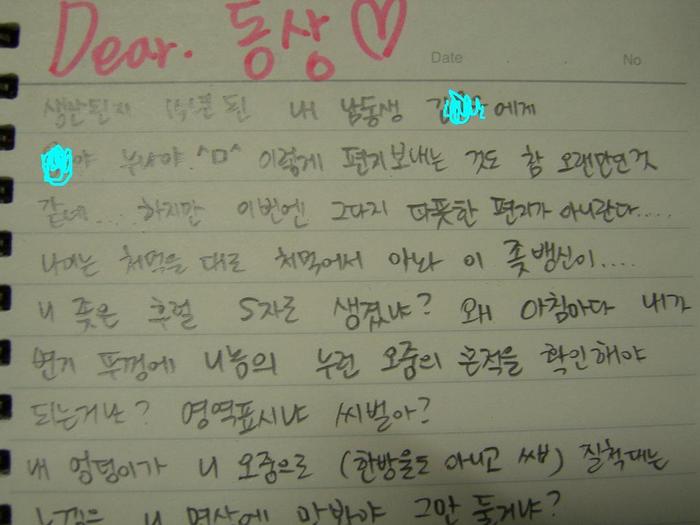 Dear. 동상 ♡
Date No
생만된지 된 내 남동생 에게
야 누나야 ^ㅁ^ 이렇게 편지보내는 것도 참 오랜만인것
같네.... 하지만 이번엔 그다지 따뜻한 편지가 아니란다.....
나이는 처먹을 대로 처먹어서 아놔 이 좆뱅신이....
니 좆은 후럴 S자로 생겼냐? 왜 아침마다 내가
변기 뚜껑에 니놈의 누런 오줌의 흔적을 확인해야
되는거냐? 영역표시냐 씨벌아?
내 엉덩이가 니 오줌으로 (한방울도 아니고 쌉) 질척대는
느낌을 니 면상에 맛봐야 그만 둘거냐?